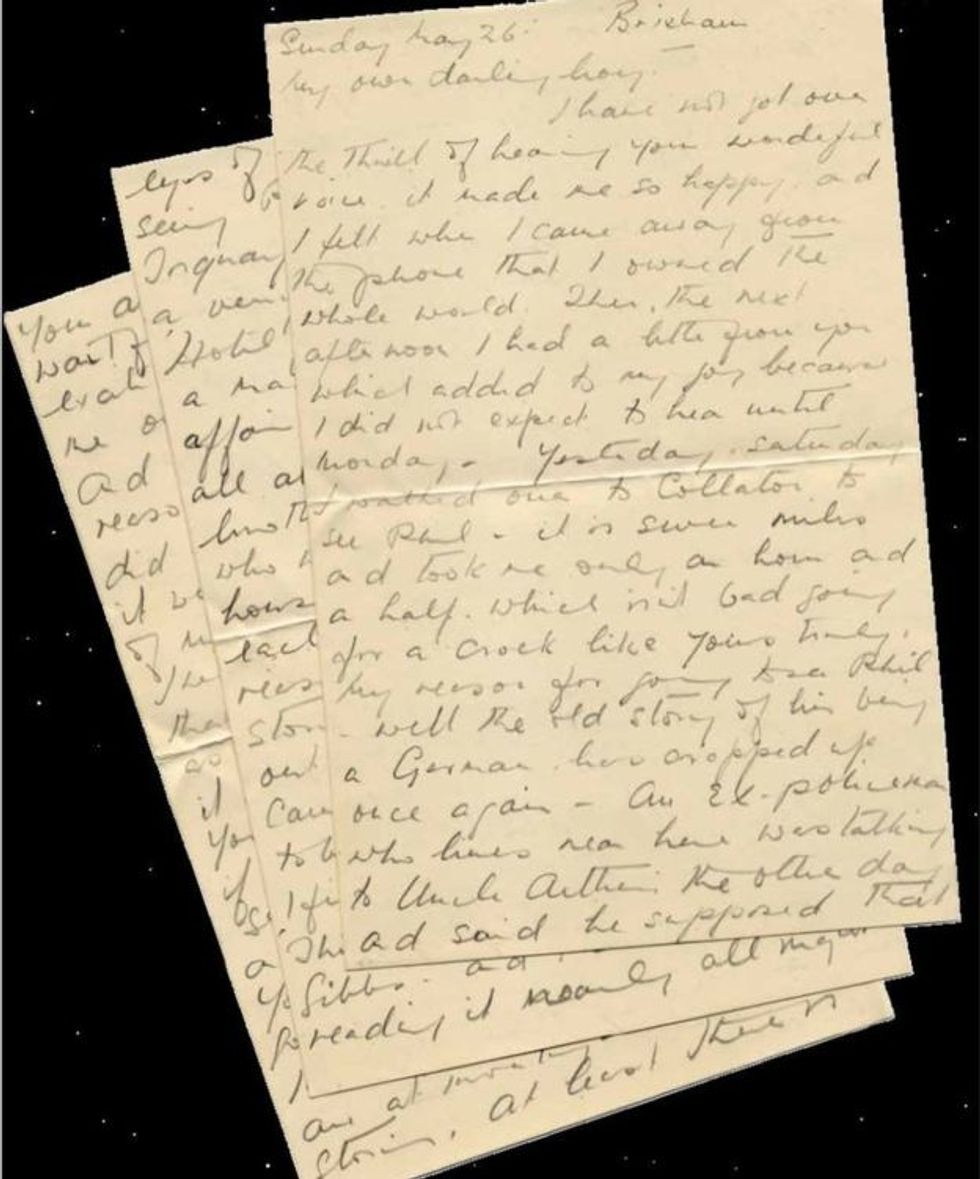 Sunday May 26. Brixham
My own darling boy.
I have not got over
the thrill of hearing your wonderful
voice. it made me so happy. and
I felt when I came away from
the phone that I owned the
whole world. Then, the next
afternoon I had a letter from you
which added to my joy because
I did not expect to hear until
Monday. - Yesterday, Saturday
I walked over to Collaton to
see Phil - it is seven miles
and took me only an hour and
a half. which isn't bad going
for a crock like yours truly.
My reason for going to see Phil
- well the old story of his being
a German has cropped up
once again - An Ex-policeman
who lives near here was talking
to Uncle Arthur the other day
and said he supposed that
eyes of
seing
Torquay
a ver
Hotel
a ma
affair
all a
who
hous
each
reas
stor
out
Cam
to b
The
Gibbs. and
reading it nearly all night
You a
wait
me o
and
reaso
did
it we
of m
tha
as
it
Yo
if
a
are at
storm. At least there is